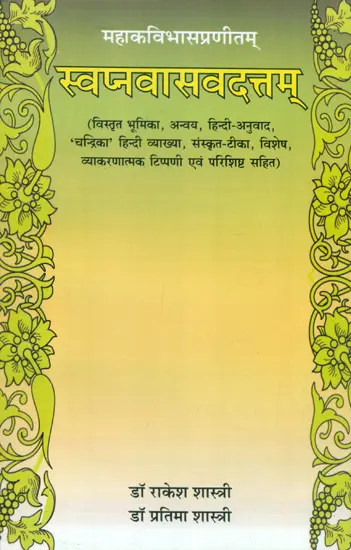 महाकविभासप्रणीतम्
स्वप्नवासवदत्तम्
(विस्तृत भूमिका, अन्वय, हिन्दी-अनुवाद,
'चन्द्रिका' हिन्दी व्याख्या, संस्कृत-टीका, विशेष,
व्याकरणात्मक टिप्पणी एवं परिशिष्ट सहित)
डॉ राकेश शास्त्री
डॉ प्रतिमा शास्त्री